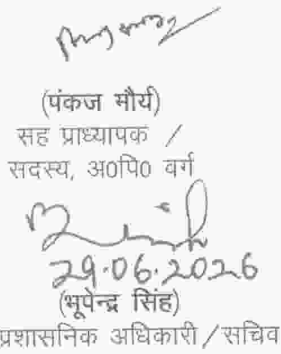 (पंकज मौर्य)
सह प्राध्यापक /
सदस्य, अ0पि0 वर्ग
29.06.2026
(भूपेन्द्र सिंह)
प्रशासनिक अधिकारी/सचिव